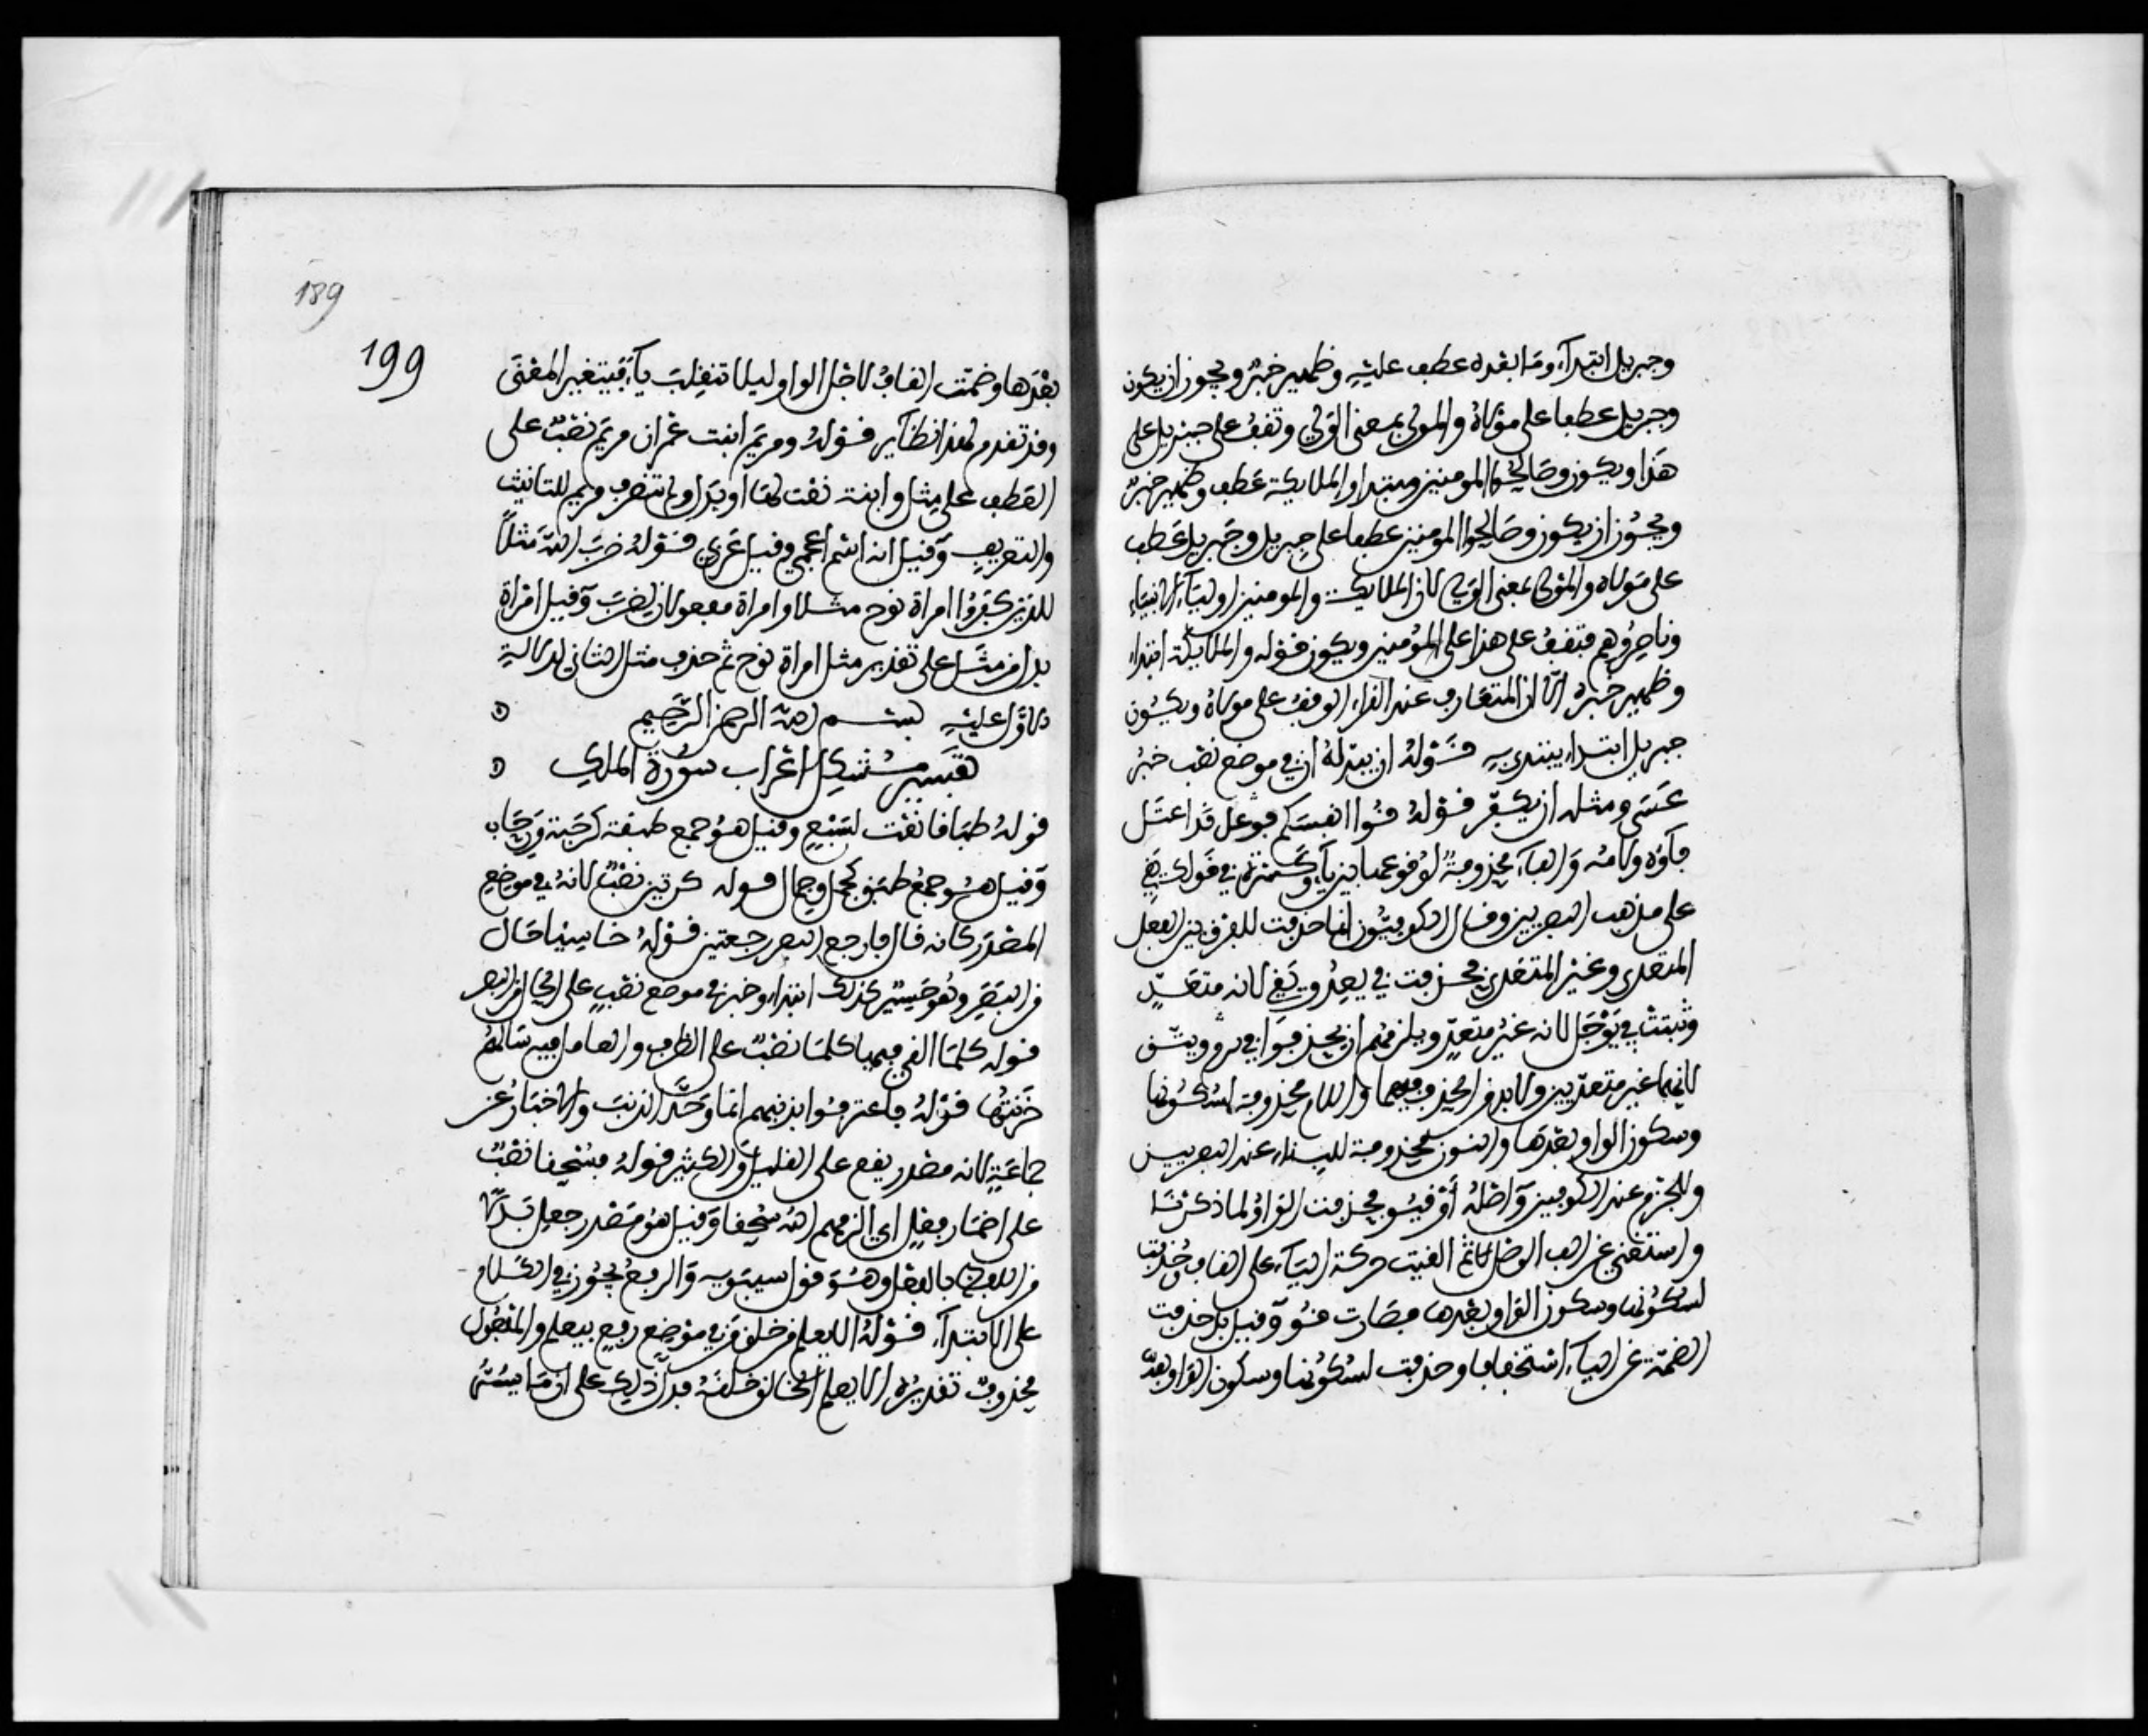 وجبريل ابتداء وما بعده عطف عليه وظهير خبر ويجوز ان يكون
وجبريل عطفا على مولاه والمولى بمعنى الولي وتقف على جبريل على
هذا ويكون وصالحوا المومنين مبتدا والملايكة عطف وظهير خبر
ويجوز ان يكون وصالحوا المومنين عطفا على جبريل وجبريل عطف
على مولاه والمولى بمعنى الولي لان الملايكة والمومنين اولياء الانبياء
وناصروهم فتقف على هذا على المؤمنين ويكون قوله والملايكة ابتداء
وظهير خبره الا ان المتعارف عند القراء الوقف على مولاه ويكون
جبريل ابتداء يبتدى به قوله ان يبدله ان في موضع نصب خبر
عسى ومثله ان يكفر قوله قوا انفسكم فوعل قد اعتل
فاؤه ولامه والفاء محذوفة لوقوعها بين ياء وكسرة في قولك يقي
على مذهب البصريين وقال الكوفيون انما حذفت للفرق بين الفعل
المتعدي وغير المتعدي فحذفت في يعد ويقي لانه متعد
وثبتت في يوجل لانه غير متعد ويلزمهم ان يحذفوا في يرم ويثق
لانهما غير متعديين ولا بد من الحذف فيهما واللام محذوفة لسكونها
وسكون الواو بعدها والنون محذوفة للبناء عند البصريين
وللجزم عند الكوفيين واصله اوقيوا فحذفت الواو لما ذكرنا
واستغنى عن الف الوصل ثم القيت حركة الياء على القاف وحذفت
لسكونها وسكون الواو بعدها فصارت قوا وقيل بل حذفت
الضمة عن الياء استخفافا وحذفت لسكونها وسكون الواو بعد
189
199
بعدها وضمت القاف لاجل الواو ليلا تنقلب ياء فيتغير المعنى
وقد تقدم لهذا نظاير قوله ومريم ابنت عمران مريم نصب على
العطف على مثل وابنة نعت لها او بدل ولم تنصرف مريم للتانيث
والتعريف وقيل انه اسم اعجمي وقيل عربي قوله ضرب الله مثلا
للذين كفروا امراة نوح مثلا وامراة مفعولان لضرب وقيل امراة
بدل من مثل على تقدير مثل امراة نوح ثم حذف مثل الثاني لدلالة
الاول عليه بسم الله الرحمن الرحيم
تفسير مشكل اعراب سورة الملك
قوله طباقا نعت لسبع وقيل هو جمع طبقة كرحبة ورحاب
وقيل هو جمع طبق كجمل وجمال قوله كرتين نصب لانه في موضع
المصدر كانه قال فارجع البصر رجعتين قوله خاسيا حال
من البصر وهو حسير كذلك ابتداء وخبر في موضع نصب على الحال من البصر
قوله كلما القي فيها كلما نصب على الظرف والعامل فيه سالهم
خزنتها قوله فاعترفوا بذنبهم انما وحد الذنب والاخبار عن
جماعة لانه مصدر يقع على القليل والكثير قوله فسحقا نصب
على اضمار فعل اي الزمهم الله سحقا وقيل هو مصدر جعل بدلا
من اللفظ بالفعل وهو قول سيبويه والرفع يجوز في الكلام
على الابتداء قوله الا يعلم من خلق من في موضع رفع بيعلم والمفعول
محذوف تقديره الا يعلم الخالق خلقه فدل ذلك على ان ما يسر